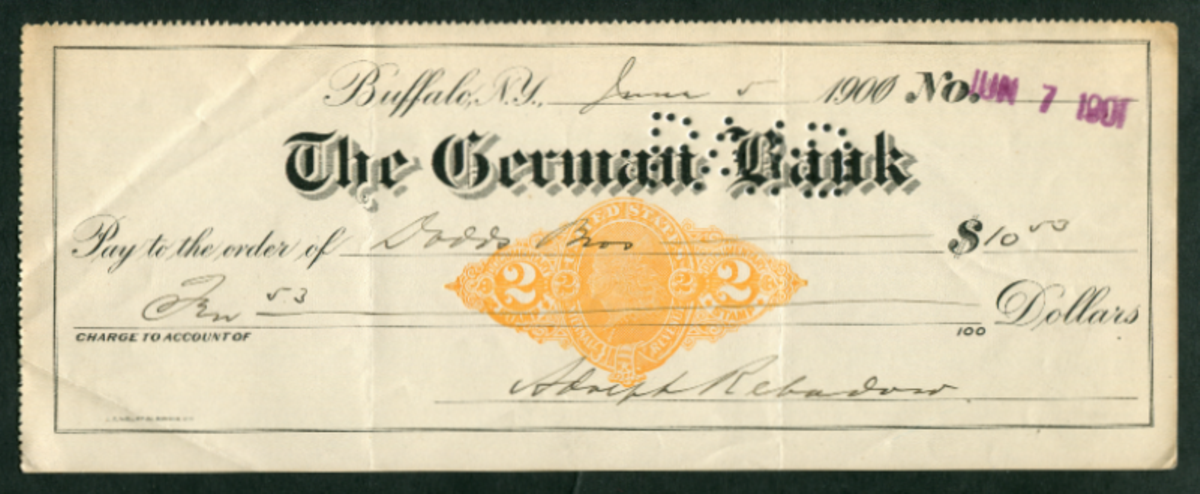 Buffalo, N.Y., June 5 1900 No. JUN 7 1901
The German Bank
Pay to the order of Dodds Bros $10 53
Ten 53 100 Dollars
CHARGE TO ACCOUNT OF
UNITED STATES
2 2 2 2
Adolph Rebadow